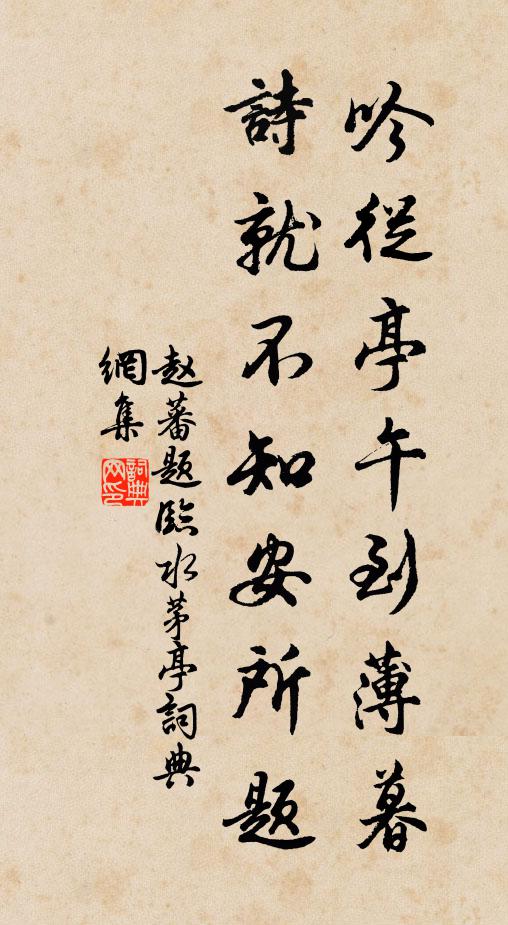 吟從亭午到薄暮
詩就不知安所題
趙蕃題臨水茅亭詞典
網集
詞典網印